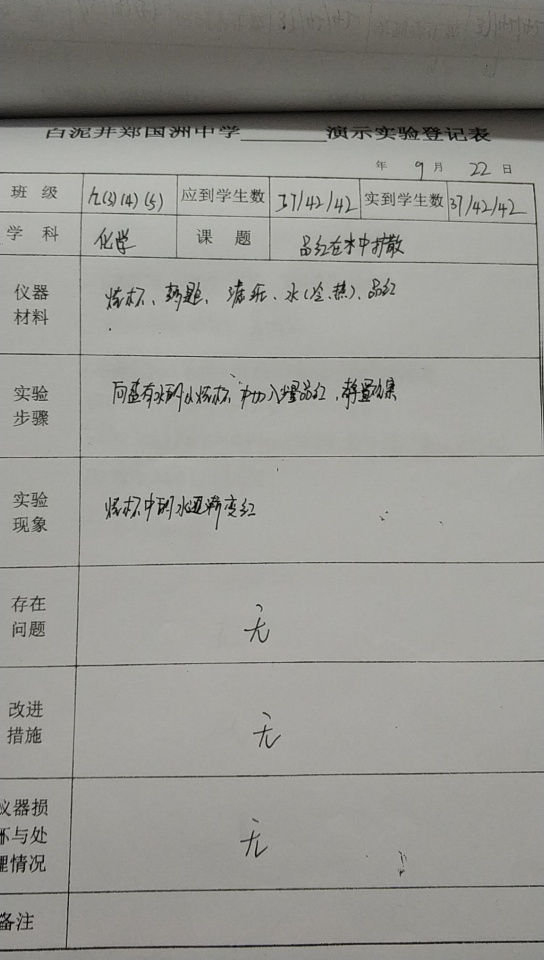 白泥井郑国洲中学______演示实验登记表
年 9 月 22 日
班 级 九(3)(4)(5) 应到学生数 37/42/42 实到学生数 37/42/42
学 科 化学 课 题 品红在水中扩散
仪器 烧杯、药匙、滤纸、水(冷、热)、品红
材料
实验 向盛有水的小烧杯中加入少量品红,静置观察
步骤
实验 烧杯中的水逐渐变红
现象
存在 无
问题
改进 无
措施
仪器损
坏与处 无
理情况
备注